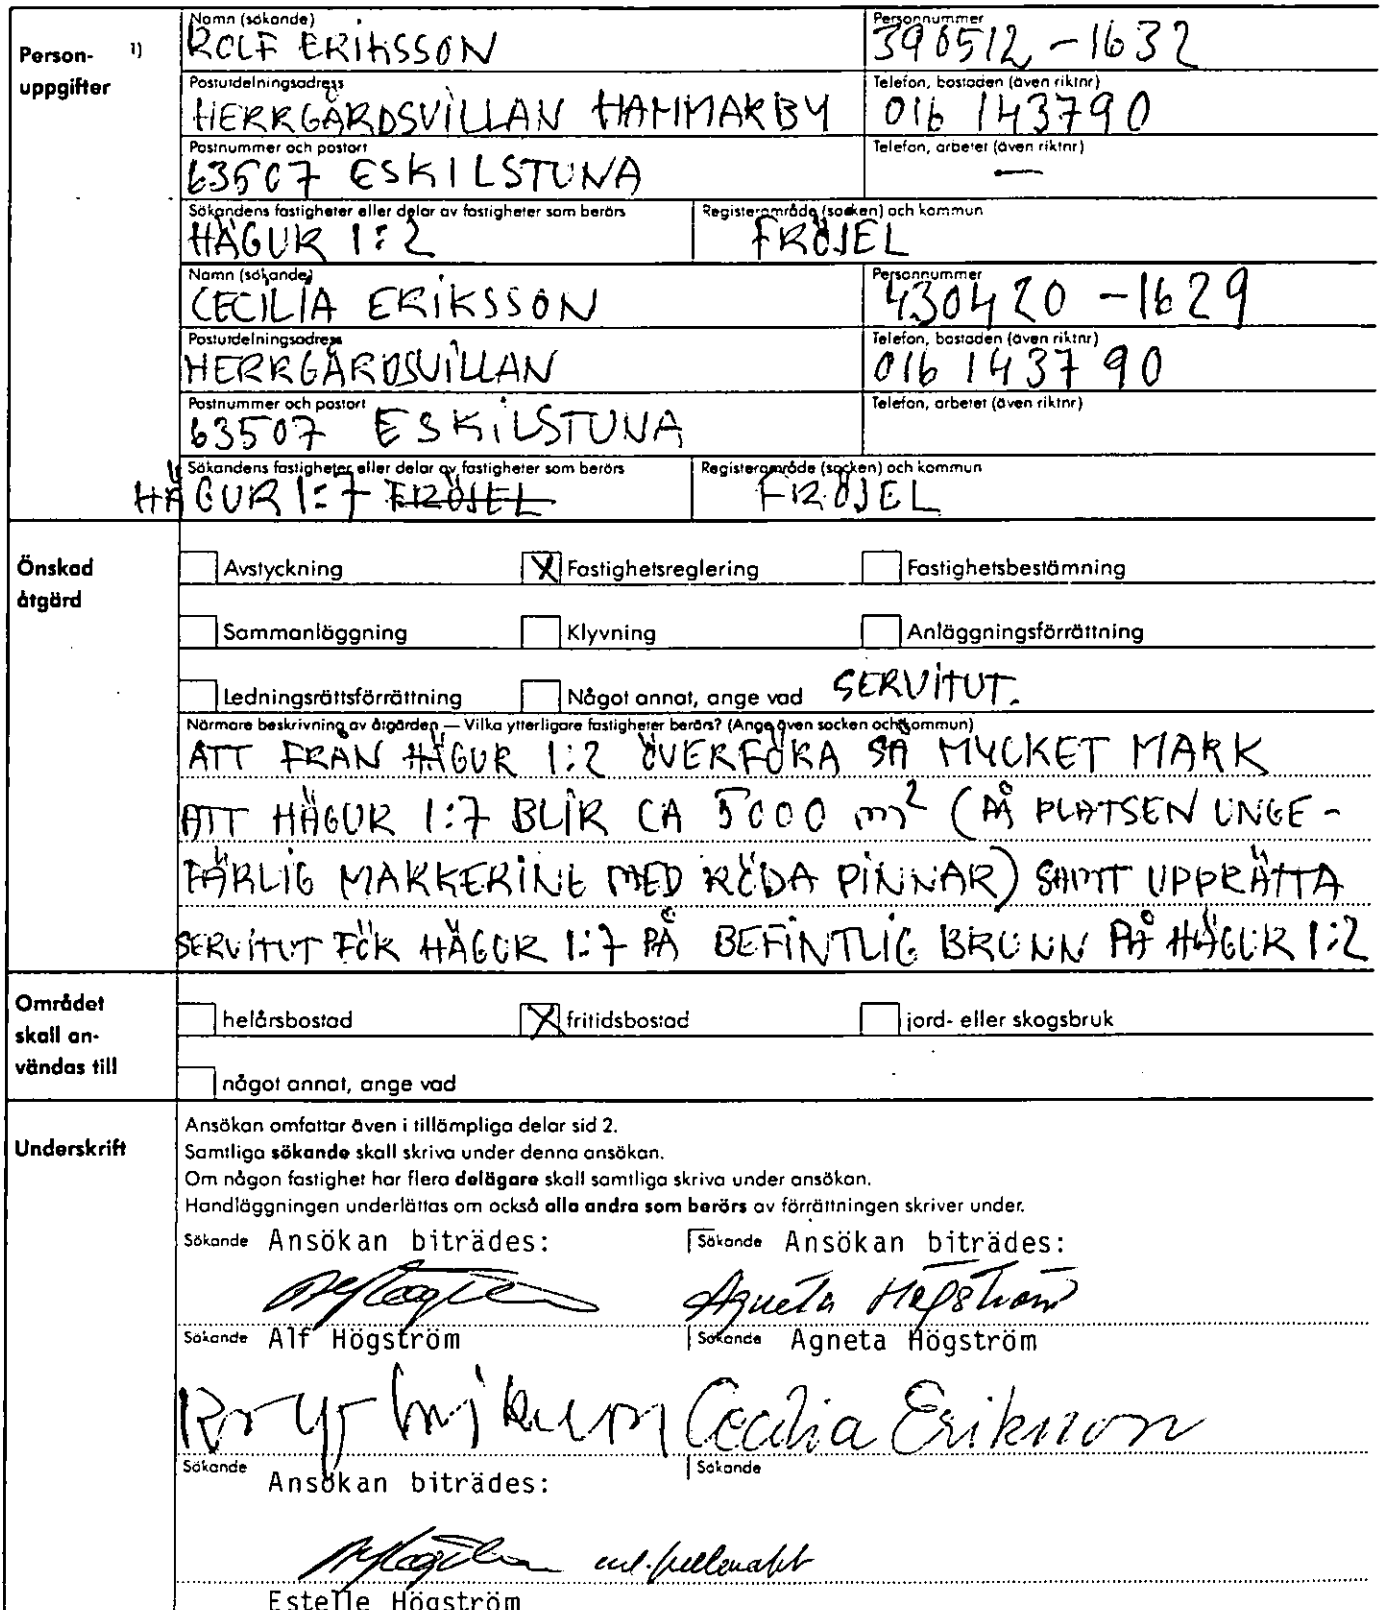 Person- 1)
uppgifter
Namn (sökande)
ROLF ERIKSSON
Personnummer
390512-1632
Postutdelningsadress
HERRGÅRDSVILLAN HAMMARBY
Telefon, bostaden (även riktnr)
016 143790
Postnummer och postort
63507 ESKILSTUNA
Telefon, arbetet (även riktnr)
—
Sökandens fastigheter eller delar av fastigheter som berörs
HÄGUR 1:2
Registerområde (socken) och kommun
FRÖJEL
Namn (sökande)
CECILIA ERIKSSON
Personnummer
430420-1629
Postutdelningsadress
HERRGÅRDSVILLAN
Telefon, bostaden (även riktnr)
016 143790
Postnummer och postort
63507 ESKILSTUNA
Telefon, arbetet (även riktnr)
Sökandens fastigheter eller delar av fastigheter som berörs
HÄGUR 1:7 FRÖJEL
Registerområde (socken) och kommun
FRÖJEL
Önskad
åtgärd
Avstyckning
X Fastighetsreglering
Fastighetsbestämning
Sammanläggning
Klyvning
Anläggningsförrättning
Ledningsrättsförrättning
Något annat, ange vad SERVITUT.
Närmare beskrivning av åtgärden — Vilka ytterligare fastigheter berörs? (Ange även socken och kommun)
ATT FRÅN HÄGUR 1:2 ÖVERFÖRA SÅ MYCKET MARK
ATT HÄGUR 1:7 BLIR CA 5000 m² (PÅ PLATSEN UNGE-
FÄRLIG MARKERING MED RÖDA PINNAR) SAMT UPPRÄTTA
SERVITUT FÖR HÄGUR 1:7 PÅ BEFINTLIG BRUNN PÅ HÄGUR 1:2
Området
skall an-
vändas till
helårsbostad
X fritidsbostad
jord- eller skogsbruk
något annat, ange vad
Underskrift
Ansökan omfattar även i tillämpliga delar sid 2.
Samtliga sökande skall skriva under denna ansökan.
Om någon fastighet har flera delägare skall samtliga skriva under ansökan.
Handläggningen underlättas om också alla andra som berörs av förrättningen skriver under.
Sökande Ansökan biträdes:
Sökande Ansökan biträdes:
Agneta Högström
Sökande Alf Högström
Sökande Agneta Högström
Cecilia Eriksson
Sökande
Ansökan biträdes:
Sökande
enl. fullmakt
Estelle Högström